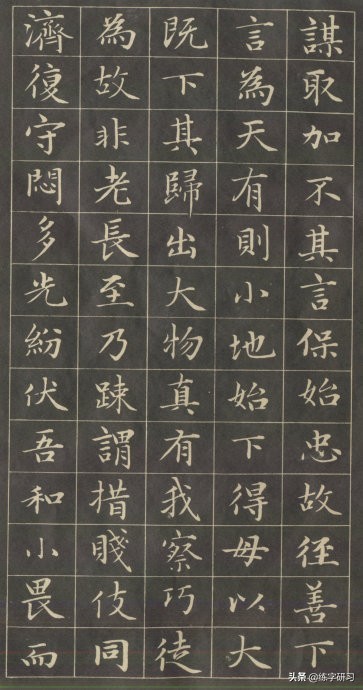 謀取加不其言保始忠故徑善下
言為天有則小地始下得毋以大
既下其歸出大物真有我察巧徒
為故非老長至乃踈謂措賤伎同
濟復守悶多光紛伏吾和小畏而
头条 @练字研习